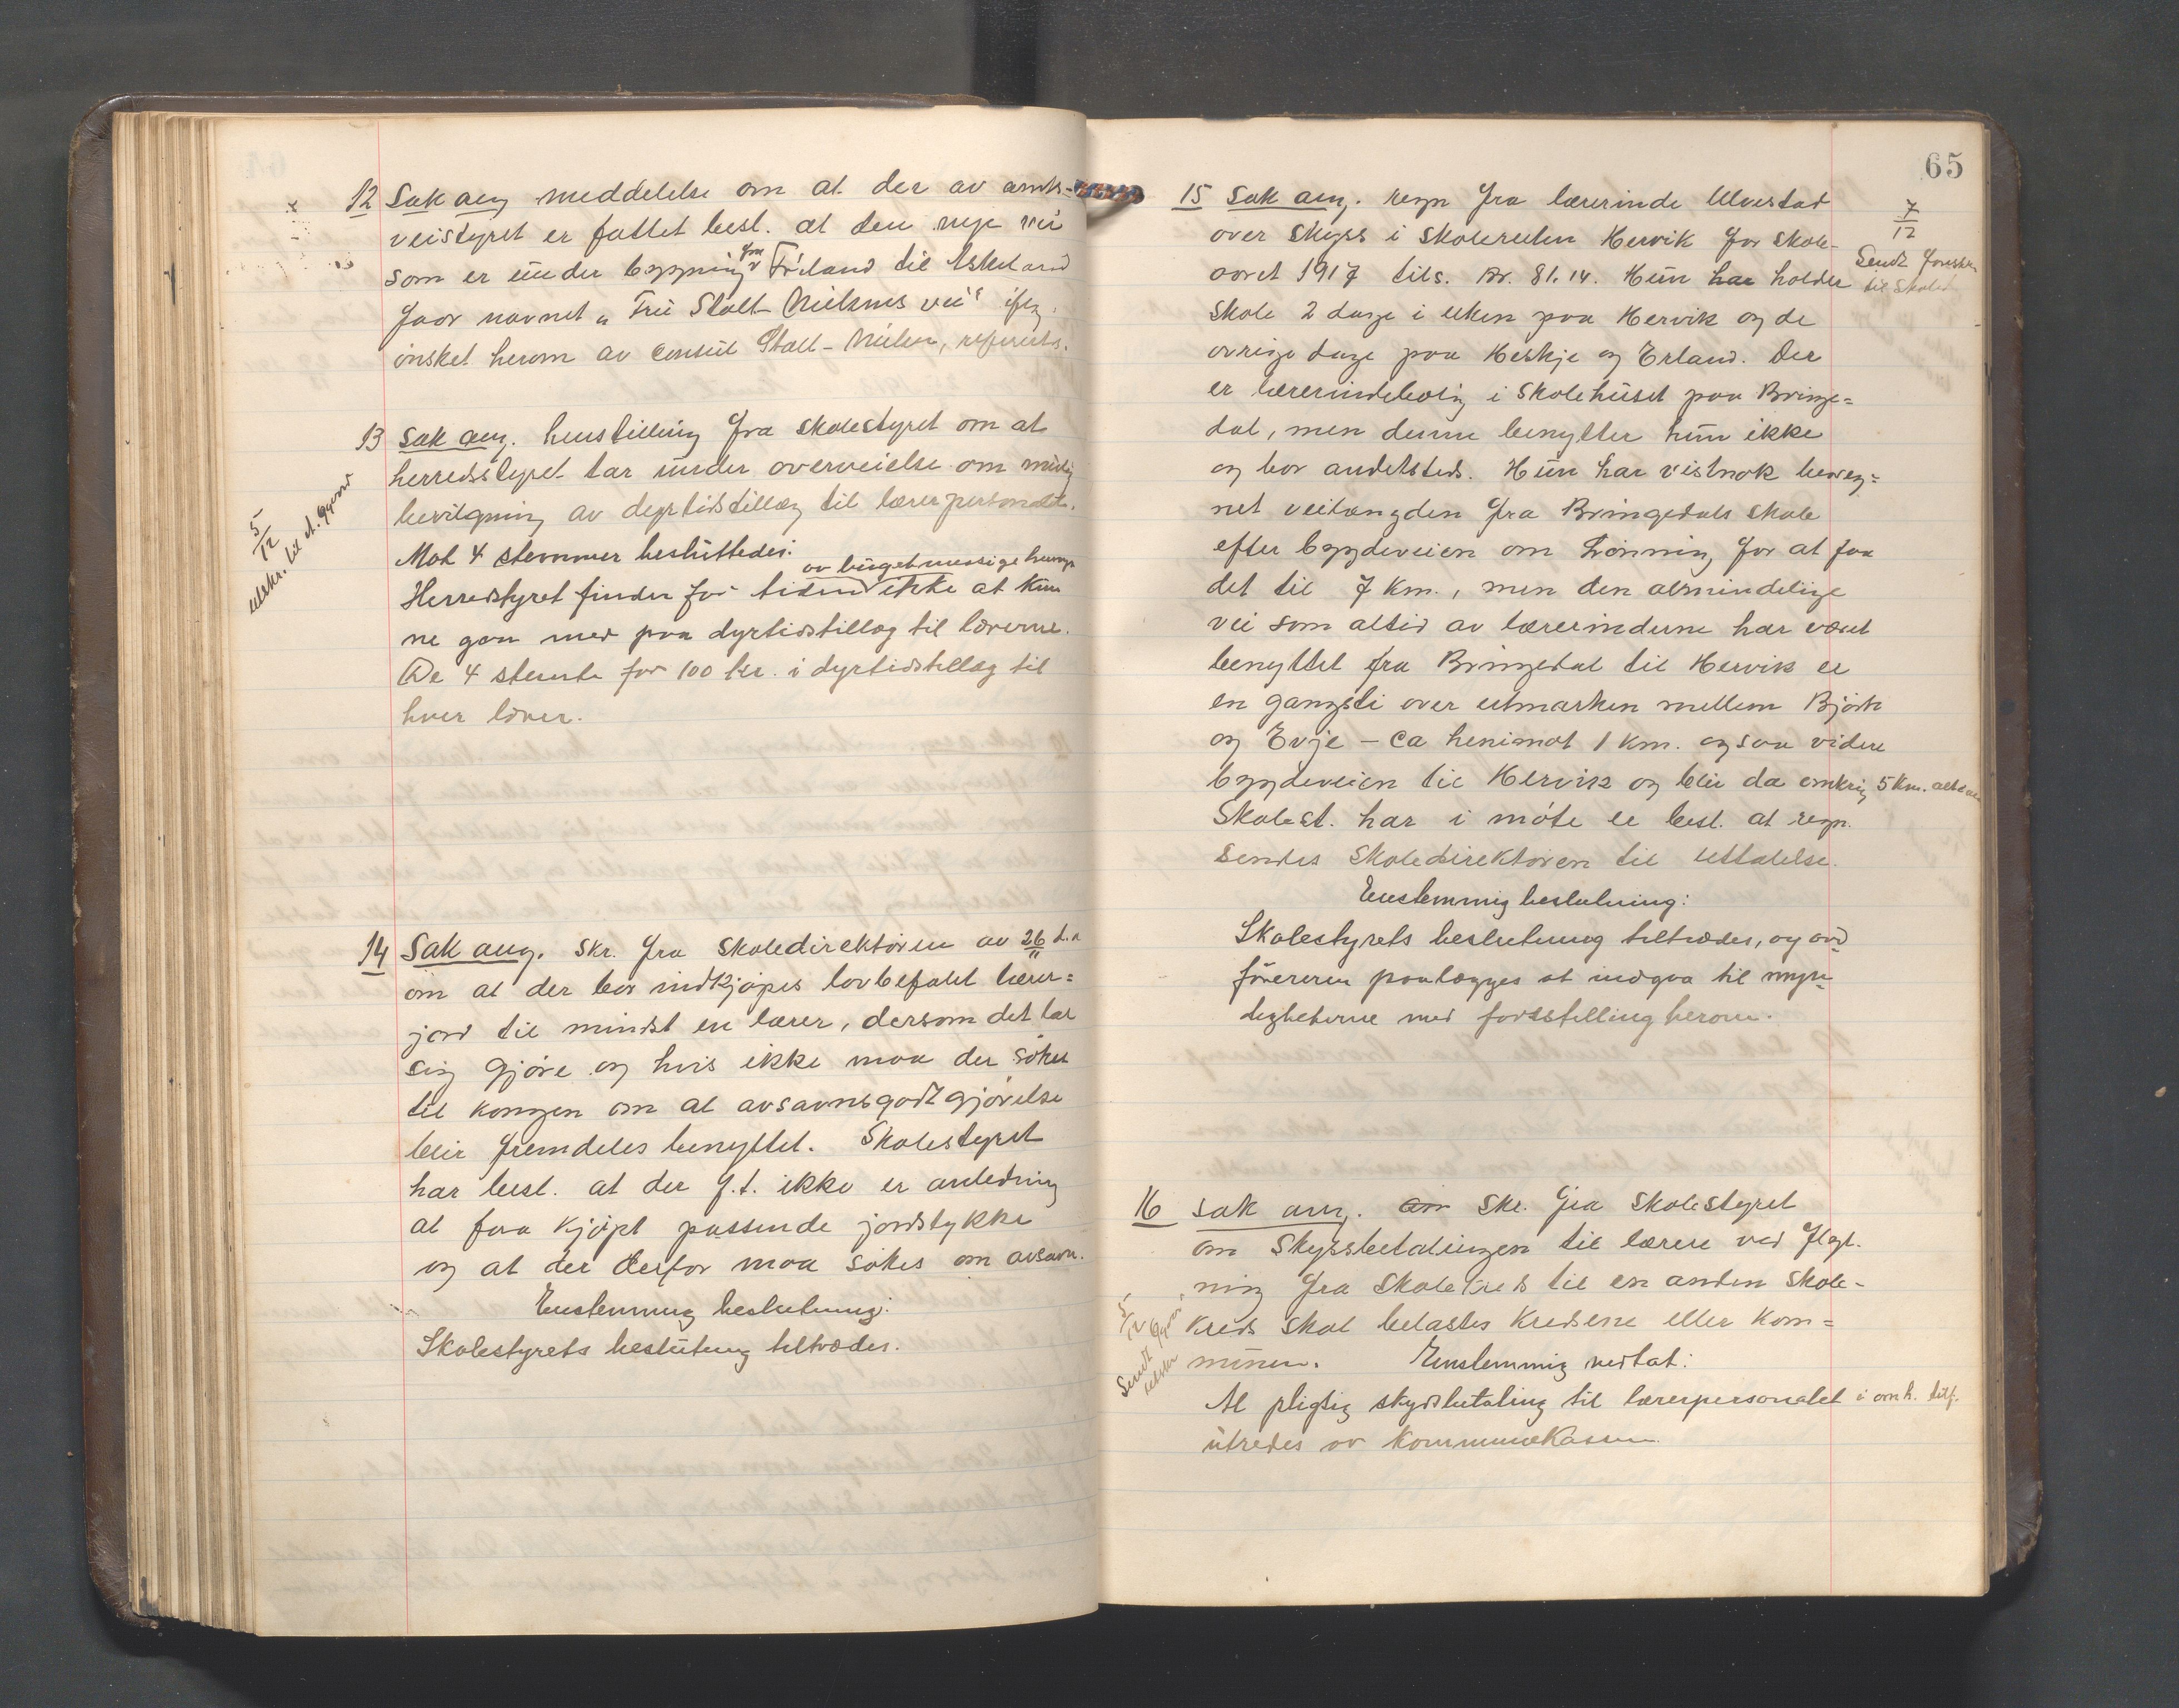 12 Sak ang meddelelse om at der av amts-
veistyret er fattet besl. at den nye vei
som er under bygning fra Frøland til Eskeland
faar navnet „Fru Stolt Nielsens vei“ iflg.
ønsket herom av Consul Stolt-Nielsen, refereres.
13 Sak ang. henstilling fra skolestyret om at
herredsstyret tar under overveielse om mulig
bevilgning av dyrtidstillæg til lærerpersonalet.
5/12
utskr. til
Mot 4 stemmer besluttedes:
av bugetmessige hensyn
Herredstyret finder for tiden ikke at kun
ne gaa med paa dyrtidstillæg til lærerne.
De 4 stemte for 100 kr. i dyrtidstillæg til
hver lærer.
14 Sak ang. skr. fra skoledirektøren av 26/11 d.a
om at der bør indkjøpes lovbefalet lærer=
jord til mindst en lærer, dersom det lar
sig gjøre og hvis ikke maa der søkes
til kongen om at avsavnsgodtgjørelse
blir fremdeles benyttet. Skolestyret
har besl. at der f.t. ikke er anledning
at faa kjøpt passende jordstykke
og at der derfor maa søkes om avsavn.
Enstemmig beslutning:
Skolestyrets beslutning tiltrædes.
65
15 Sak ang. regn fra lærerinde Ulvestad
over skyss i skoleruten Hervik for skole-
aaret 1917 tils. kr. 81.14. Hun har holdt
7/12
Sendt
til skoled
skole 2 dage i uken paa Hervik og de
øvrige dage paa Heskje og Erland. Der
er lærerindebolig i skolehuset paa Bringe=
dal, men denne benytter hun ikke
og bor andetsteds. Hun har vistnok bereg=
net veilængden fra Bringedals skole
efter bygdeveien om Lønning for at faa
det til 7 km., men den almindelige
vei som altid av lærerinderne har været
benyttet fra Bringedal til Hervik er
en gangsti over utmarken mellem Bjørk
og Evje – ca henimot 1 km. og saa videre
bygdeveien til Hervik og blir da omkring 5 km. altsaa
Skolest. har i møte er besl. at regn.
sendes skoledirektøren til uttalelse.
Enstemmig beslutning:
Skolestyrets beslutning tiltrædes, og ord
føreren paalægges at indgaa til myn
digheterne med forestilling herom.
16 Sak ang. om skr. fra skolestyret
om skyssbetalingen til lærere ved flyt-
ning fra skolekreds til en anden skole-
kreds skal belastes kredsene eller kom=
munen. Enstemmig vedtat:
5/12
Sendt
utskr
Al pligtig skydsbetaling til lærerpersonalet i omh. tilf.
utredes av kommunekassen.